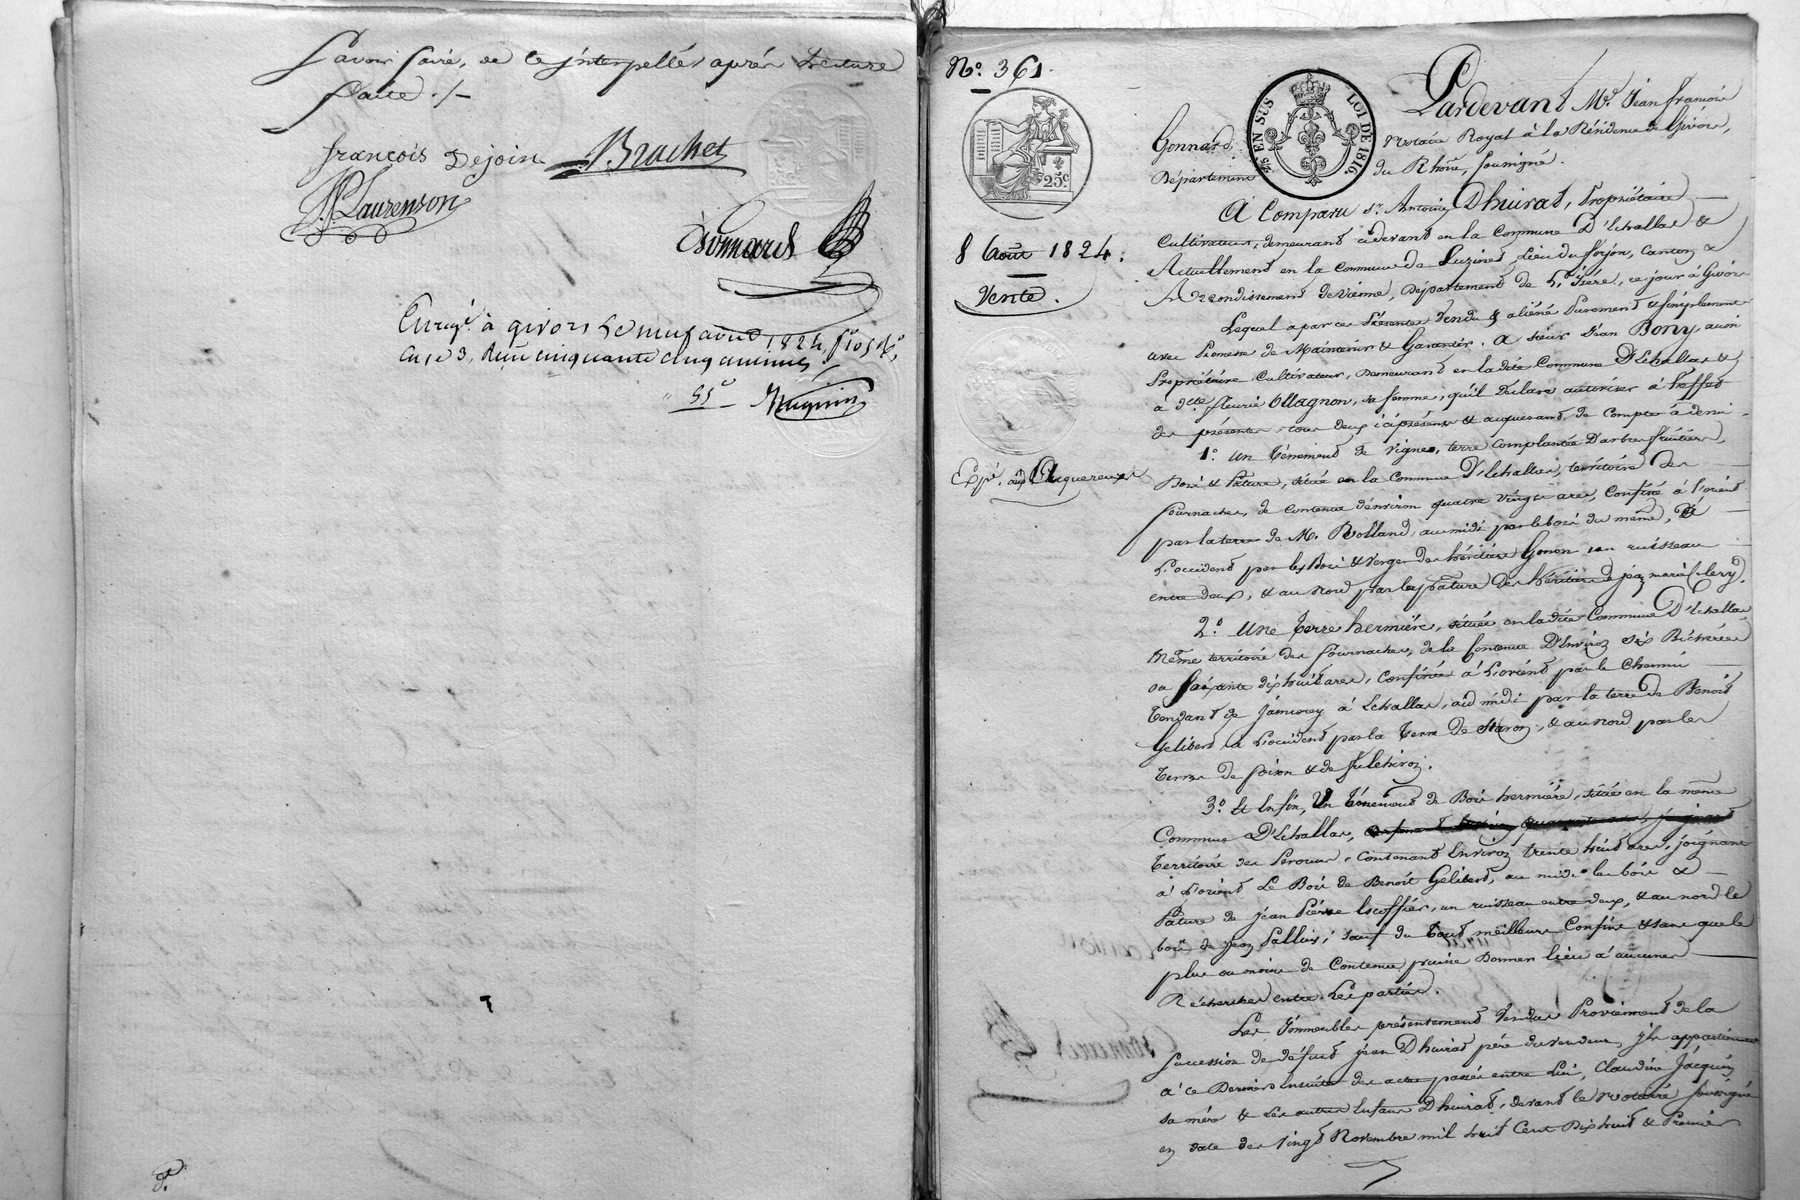 Savoir faire, de ce interpellés après Lecture
faite ./-
françois Dejoin Brachet
Laurenson
Gonnard
Enregé à givors le neuf août 1824, fo 105 Ro,
case 3, Reçu cinquante cinq centimes
55c
25c
No. 361.
8 Août 1824.
Vente.
Expé. aux Acquereurs
EN SUS LOI DE 1816
25c
Pardevant Me. Jean françois
Gonnard, Notaire Royal à la Résidence de Givors,
Département du Rhône, soussigné.
A Comparu sr. Antoine Dhuirat, Propriétaire
Cultivateur, demeurant cidevant en la Commune D'Echallas &
Actuellement en la Commune de Luzinet, Lieu du Forjon, Canton &
Arrondissement de Vienne, Département de L'Isère, ce jour à Givors
Lequel a par ces Présentes Vendu & aliéné Purement & simplement
avec Promesse de Maintenir & Garantir. A sieur Jean Bony,
Propriétaire Cultivateur, Demeurant en la dite Commune D'Echallas &
à dte. fleurie Ollagnon, sa femme, qu'il Déclare autoriser à l'effet
des présentes, tous deux ici présens & acquerant de Compte à demi.
1o. Un Ténement de Vignes, terre complantée D'arbres fruitiers,
Bois & Pature, située en la Commune D'Echallas, territoire des
fournaches, de contenue d'environ quatre vingts ares, Confiné à l'orient
par la terre de M. Rolland, au midi par le bois du même, &
L'occident par les Bois & Verger des héritiers Gonon un ruisseau
entre deux, & au Nord par les Pature des héritiers de jean marie Clery.
2o. Une Terre hermière, située en la dite Commune D'Echallas
même territoire des fournaches, de la Contenue D'Environ six Bicherées
ou soixante dix huit ares, confinée à L'orient par le Chemin
Tendant de Jamorey à Echallas, au midi par la terre de Benoit
Gelibert à L'occident par la Terre de Staron, & au Nord par les
Terres de foison & de
3o. Et Enfin, Un Ténement de Bois hermière, située en la même
Commune D'Echallas,
Territoire des Perouses, Contenant Environ trente huit ares, joignant
à L'orient Le Bois de Benoît Gelibert, au midi le bois &
Pature de jean Pierre Escoffier, un ruisseau entre deux, & au nord le
bois de jean Palluis; sauf du tout meilleurs Confins & sans que le
plus ou moins de Contenue puisse Donner lieu à aucunes
Recherches entre Les parties.
Les Immeubles présentement Vendus Proviennent de la
succession de défunt jean Dhuirat père du vendeur, ils appartiennent
à ce Dernier Ensuite des actes passés entre Lui, Claudine Jacquin
sa mère & Les autres Enfans Dhuirat, devant le Notaire soussigné
en date des Vingt Novembre mil huit Cent Dix huit & Premier